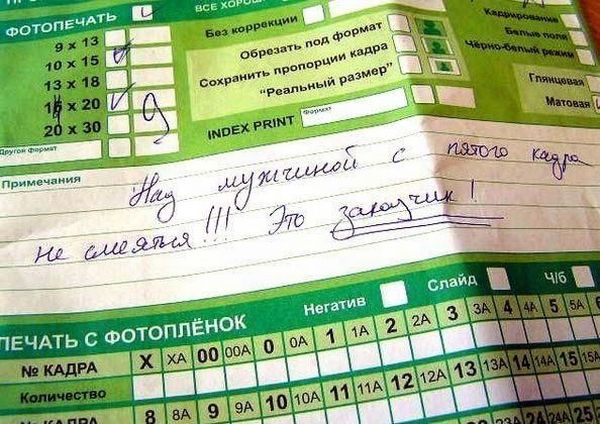 ВСЕ ХОРОШ
ФОТОПЕЧАТЬ
9 x 13
10 x 15
13 x 18
18 x 20
20 x 30
Другой формат
9
Без коррекции
Обрезать под формат
Сохранить пропорции кадра
"Реальный размер"
INDEX PRINT
Формат
Кадрирование
Белые поля
Чёрно-белый режим
Глянцевая
Матовая
Примечания
Над мужчиной с пятого кадра
не смеяться!!! Это заказчик!
Негатив
Слайд
Ч/б
ПЕЧАТЬ С ФОТОПЛЁНОК
№ КАДРА X XA 00 00A 0 0A 1 1A 2 2A 3 3A 4 4A 5 5A
Количество
№ КАДРА 8 8A 9 9A 10 10A 11 11A 12 12A 13 13A 14 14A 15 15A
23 23A 24 24A 25